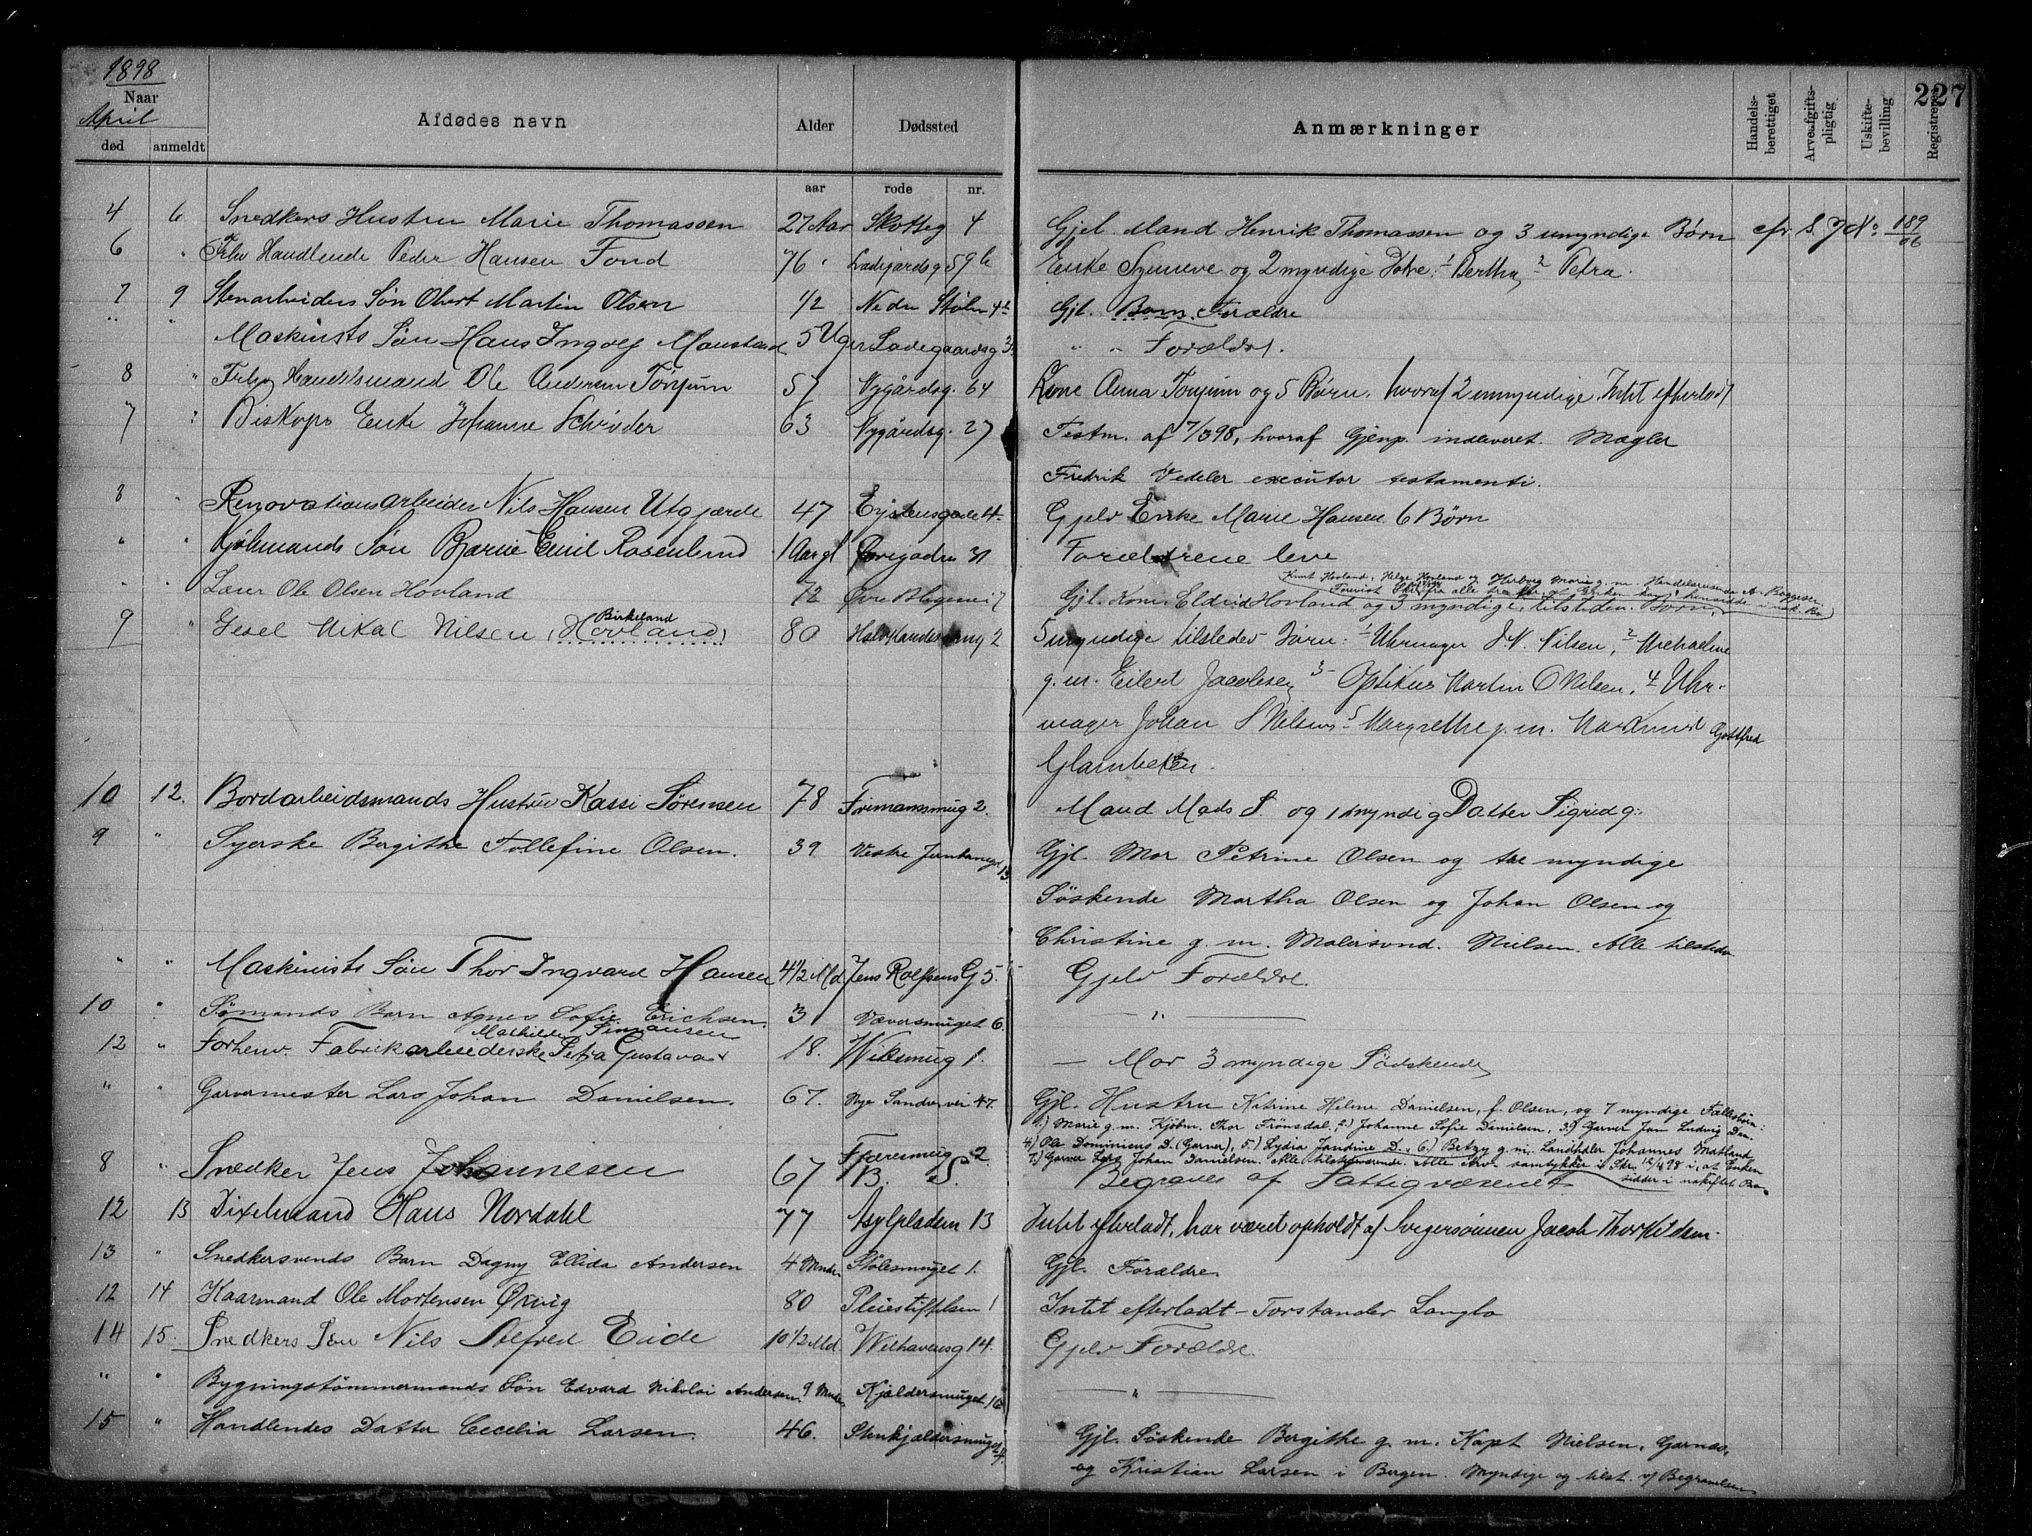 1898
227
Naar
April
død anmeldt
Afdødes navn
Alder
Dødssted
Anmærkninger
Handels-berettiget
Arveafgifts-pligtig
Uskifte-bevilling
Registreret
aar rode nr.
4 6 Snedkers Hustru Marie Thomassen 27 Aar Skotteg 4 Gjel. Mand Henrik Thomassen og 3 umyndige Børn cfr S. J No 189/06
6 " Frhv Handlende Peder Hansen Fond 76 " Ladegårdsg 59 b Enke Synneve og 2 myndige Døtre: 1 Bertha 2 Petra.
7 9 Stenarbeiders Søn Olert Martin Olsen 1/2 Nedre Stølen 4 Gjl. Barn. Forældre
" " Maskinists Søn Hans Ingolf Monstad 5 Uger Ladegaardsg " " Forældre.
8 " Frhv Handelsmand Ole Andersen Tönjum 57 Nygårdsg. 64 Kone Anna Tonjum og 5 Børn, hvoraf 2 umyndige. Intet efterladt
7 " Biskops Enke Johanne Schrøder 63 Nygårdsg. 27 Testm. af 7/3 98, hvoraf Gjenp. indleveret. Mægler
Fredrik Vedeler executor testamenti.
8 " Renovationsarbeider Nils Hansen Utgjærde 47 Eystensgade 4 Gjelv Enke Marie Hansen 6 Børn
" " Kjølemands Søn Bjarne Emil Rosenlund 1 Aar gl Øvregaden 31 Forældrene leve
Knut Hovland, Helge Hovland og Herborg Marie g. m. Handelsreisende A.
" " Lærer Ole Olsen Hovland 72 Øvre Blegevei 7 Gjl. Kone Eldrid Hovland og 3 myndige, tilsteden. Børn,
Birkeland
9 " Gesel Mikal Nilsen (Hovland) 80 Halvkandesmug 2 5 myndige tilstedev Børn: 1 Uhrmager J. N. Nilsen, 2 Michaeline
g. m. Eilerd Jacobsen, 3 Optikus Martin O Nilsen, 4 Uhr-
mager Johan S Nilsen 5 Margrethe g. m. Gottfred
10 12. Bordarbeidsmands Hustru Kassi Sørensen 78 Firmansmug 2. Mand Mads S. og 1 myndig Datter Sigrid g:
9 " Syerske Bergithe Tollefine Olsen. 39 Vestre 13. Gjl. Mor Petrine Olsen og tre myndige
Söskende Martha Olsen og Johan Olsen og
Christine g. m. Malersvend. Nielsen. Alle tilstede
" " Maskinists Søn Thor Ingvard Hansen 4 1/2 Md. Jens Rolfsens G 5. Gjelv Forældre.
10 " Sømands Barn Agnes Sofie Erichsen. 3 Væversmuget 6. — " —
Mathilde Simonsen
12 " Forhenv. Fabrikarbeiderske Petra Gustava 18. Wiksmug 1. — Mor 3 myndige Södskende
" " Garvermester Lars Johan Danielsen. 67. Nye Sandvsvei 47. Gjl. Hustru Katrine Helene Danielsen, f. Olsen, og 7 myndige Fællesbörn:
1) Marie g. m. Kjøbm. Thor Trönsdal, 2) Johanne Sofie Danielsen, 3) Garver Jan Ludvig Dan.
4) Ole Dominicus D. (Garver), 5) Lydia Jandine D. 6) Betzy g. m. Landhdler Johannes Matland
7) Garver Lars Johan Danielsen. Alle tilstedeværende. Alle Arv. samtykker i Skr. 12/4 98 i, at Enken
sidder i uskiftet Bo.
8 " Snedker Jens Johannesen 67 Fjæresmug 2 B. S. Begraves af Fattigvæsenet
12 13 Dixelmand Hans Nordahl 77 Asylpladsen 13 Intet efterladt, har været opholdt af Svigersönnen Jacob Thorkildsen.
13 " Snedkersvends Barn Dagny Ellida Andersen 4 Mndr Stölesmuget 1. Gjl. Forældre.
12 14 Haarmand Ole Mortensen Økvig 80 Pleiestiftelsen 1 Intet efterladt - Forstander Langlo
14 15. Snedkers Søn Nils Alfred Eide 10 1/2 Md. Welhavensg 14. Gjelv Forældre.
" " Bygningstömmermands Søn Edvard Nikolai Andersen. 9 Mndr. Kjældersmuget 16 — " —
15 " Handlendes Datter Cecelia Larsen. 46. Stenkjældersmuget Gjl. Söskende Bergithe g. m. Kapt Nielsen, Garnæs,
og Kristian Larsen i Bergen. Myndige og tilst. v/ Begravelsen